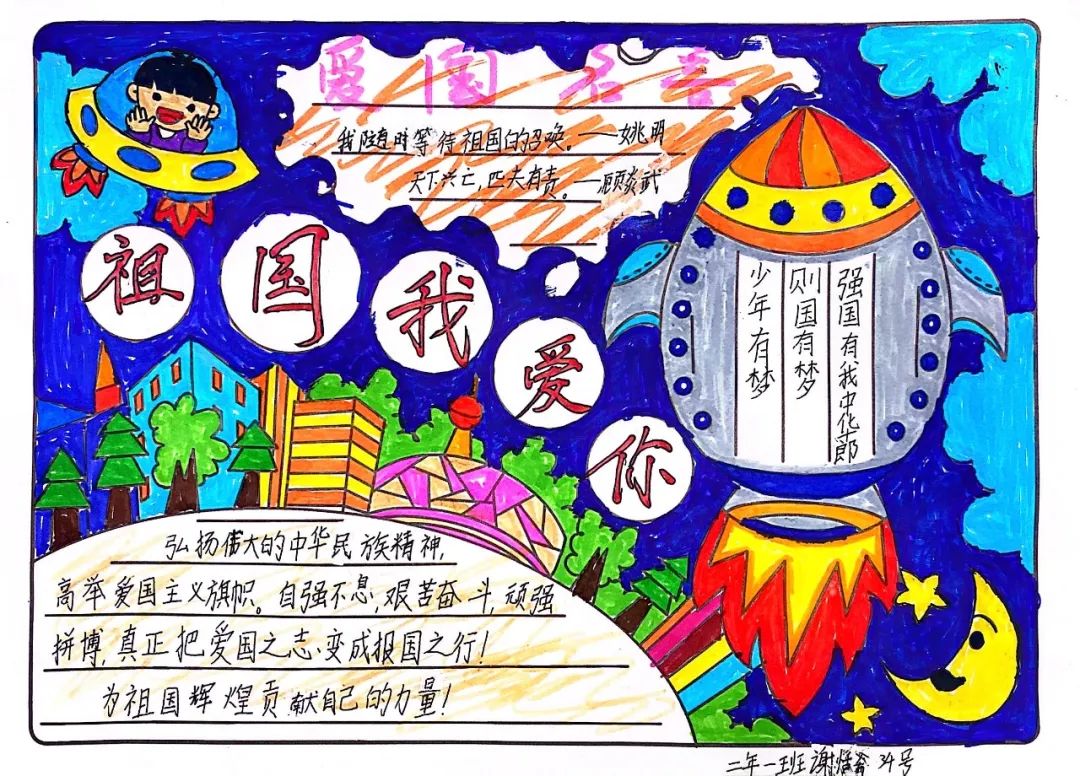 爱国名言
我随时等待祖国的召唤。——姚明
天下兴亡,匹夫有责。——顾炎武
祖国我爱你
少年有梦
则国有梦
强国有我中化
弘扬伟大的中华民族精神,
高举爱国主义旗帜。自强不息,艰苦奋斗,顽强
拼博,真正把爱国之志、变成报国之行!
为祖国辉煌贡献自己的力量!
二年一班 谢 34号